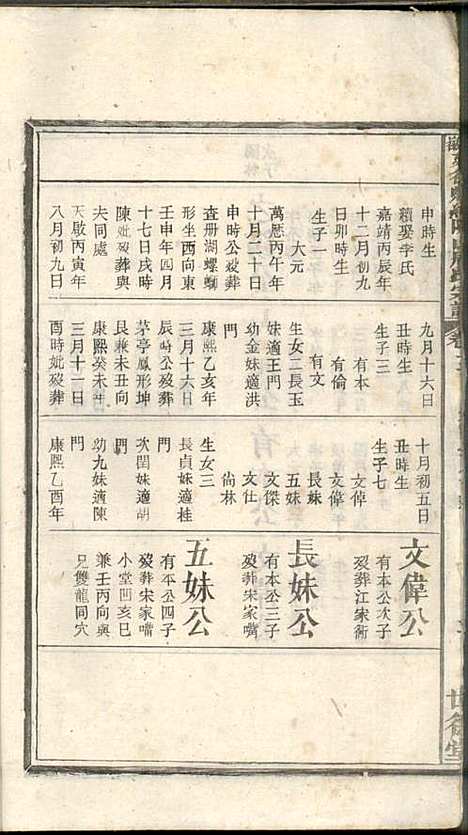 申時生
續娶李氏
嘉靖丙辰年
十二月初九
日卯時生
生子一
大元
萬厯丙午年
十月二十日
申時公歿葬
查册湖螺螄
形坐西向東
壬申年四月
十七日戌時
陳妣歿葬與
夫同處
天啟丙寅年
八月初九日
九月十六日
丑時生
生子三
有本
有倫
有文
生女三長玉
妹適王門
幼金妹適洪
門
康熙乙亥年
三月十六日
辰時公歿葬
茅亭鳳形坤
艮兼未丑向
康熙癸未年
三月十一日
酉時妣歿葬
十月初五日
丑時生
生子七
文倬
文偉
長妹
五妹
文傑
文仕
尙林
生女三
長貞妹適桂
門
次閏妹適胡
門
幼九妹適陳
門
康熙乙酉年
文偉公
有本公次子
歿葬江家衕
長妹公
有本公三子
歿葬宋家嘴
五妹公
有本公四子
歿葬宋家嘴
小堂凹亥巳
兼壬丙向與
兄雙龍同穴